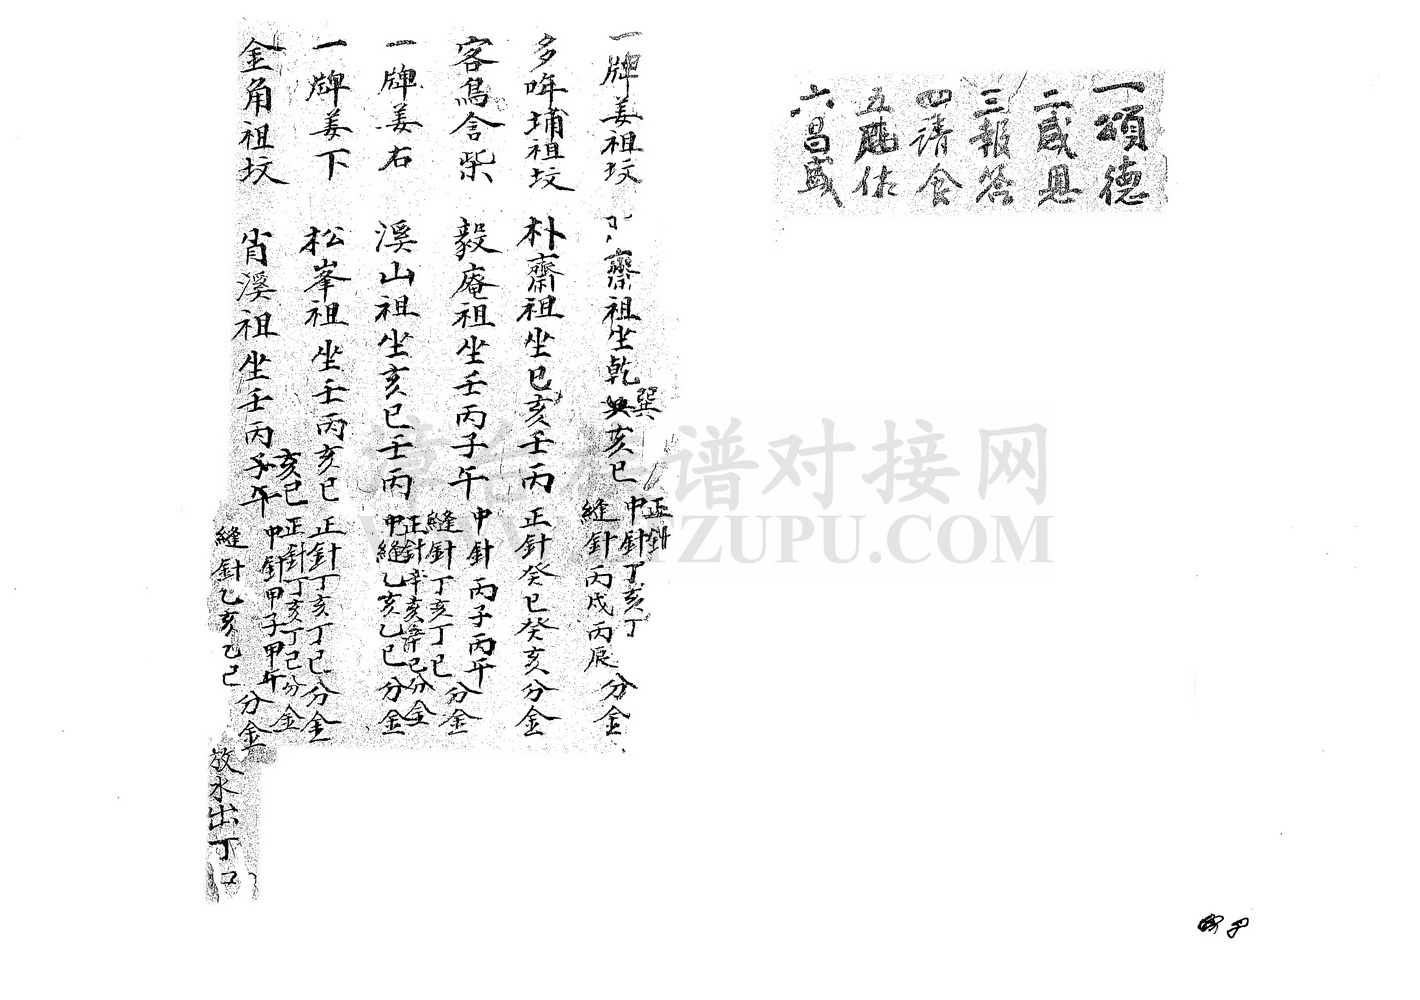 一頌德
二感恩
三報答
四請食
五庇佑
六昌盛
一牌姜祖坟 齋祖坐乾巽亥巳 正針 中針丁亥丁 縫針丙戌丙辰 分金
多哖埔祖坟 朴齋祖坐巳亥壬丙 正針癸巳癸亥分金
客鳥含柴 毅庵祖坐壬丙子午 中針丙子丙午 縫針丁亥丁巳 分金
一牌姜右 溪山祖坐亥巳壬丙 正針辛亥辛巳分金 中縫乙亥乙巳分金
一牌姜下 松峯祖坐壬丙亥巳 正針丁亥丁巳分金
金角祖坟 肖溪祖坐壬丙子午 亥巳 正針丁亥丁巳分金 中針甲子甲午 縫針乙亥乙巳 分金
放水出丁口
漳台族谱对接网
WWW.ZTZUPU.COM